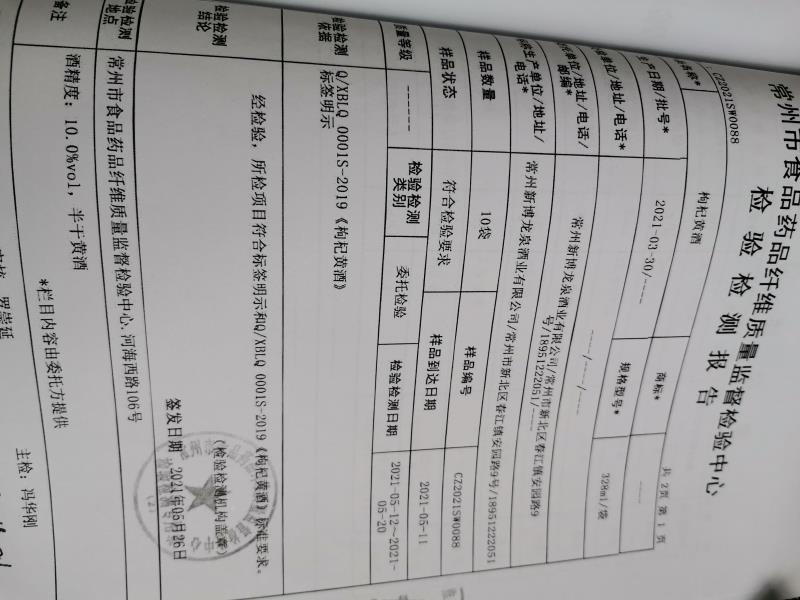 常州市食品药品纤维质量监督检验中心
检 验 检 测 报 告
CZ2021SW0088
共 2页 第 1 页
枸杞黄酒
商标*
----
生产日期/批号*
2021-03-30/----
规格型号*
328ml/袋
单位/地址/电话*
----/----/----
单位/地址/电话/
邮编*
常州新博龙泉酒业有限公司/常州市新北区春江镇安园路9
号/18951222051/----
生产单位/地址/
电话*
常州新博龙泉酒业有限公司/常州市新北区春江镇安园路9号/18951222051
样品数量
10袋
样品编号
CZ2021SW0088
样品状态
符合检验要求
样品到达日期
2021-05-11
质量等级
------
检验检测
类别
委托检验
检验检测日期
2021-05-12~2021-
05-20
检验检测
依据
Q/XBLQ 0001S-2019《枸杞黄酒》
标签明示
检验检测
结论
经检验，所检项目符合标签明示和Q/XBLQ 0001S-2019《枸杞黄酒》标准要求。
（检验检测机构盖章）
签发日期 2021年05月26日
检验检测
地点
常州市食品药品纤维质量监督检验中心.河海西路106号
备注
酒精度：10.0%vol，半干黄酒
*栏目内容由委托方提供
审核 罗崇延
主检：冯华刚